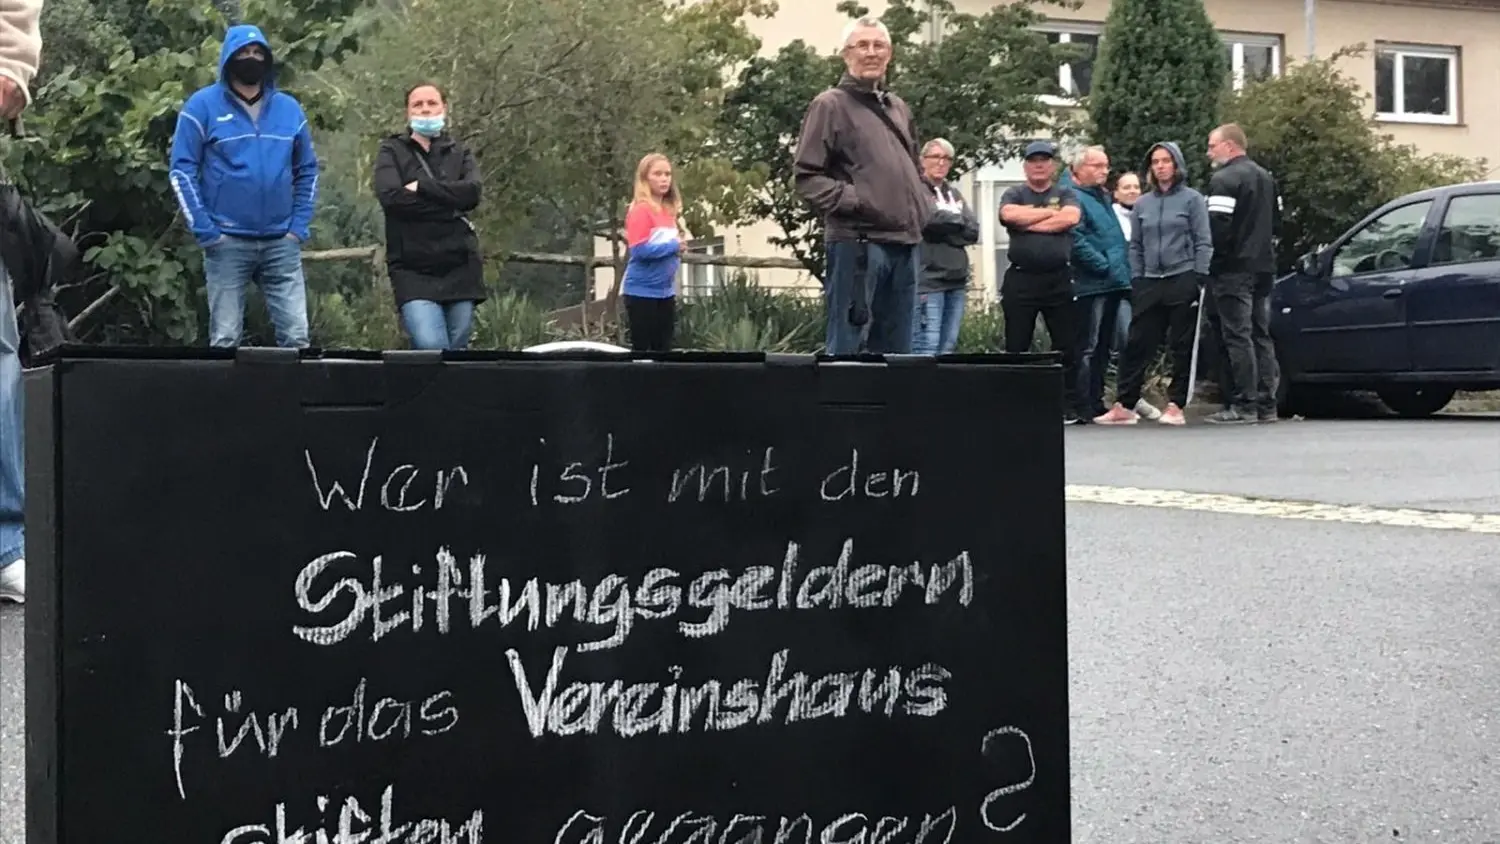 Wer ist mit den
Stiftungsgeldern
für das Vereinshaus
stiften gegangen?